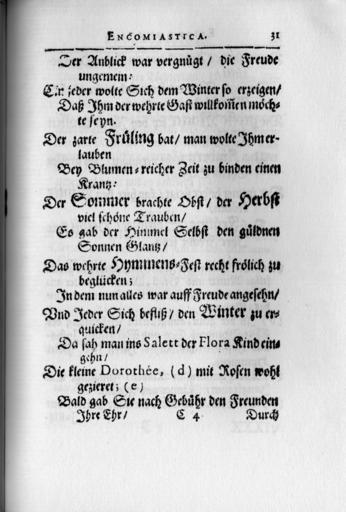 ENCOMIASTICA. 31
Der Anblick war vergnügt/ die Freude
ungemein:
Ein jeder wolte Sich dem Winter so erzeigen/
Daß Ihm der wehrte Gast willkom̃en möch-
te seyn.
Der zarte Früling bat/ man wolte Ihm er-
lauben
Bey Blumen-reicher Zeit zu binden einen
Krantz:
Der Sommer brachte Obst/ der Herbst
viel schöne Trauben/
Es gab der Himmel Selbst den güldnen
Sonnen Glantz/
Das wehrte Hymmens-Fest recht frölich zu
beglücken;
In dem nun alles war auff Freude angesehn/
Vnd Jeder Sich befliß/ den Winter zu er-
quicken/
Da sah man ins Salett der Flora Kind ein-
gehn/
Die kleine Dorothée, (d) mit Rosen wohl
gezieret; (e)
Bald gab Sie nach Gebühr den Freunden
Ihre Ehr/ C 4 Durch